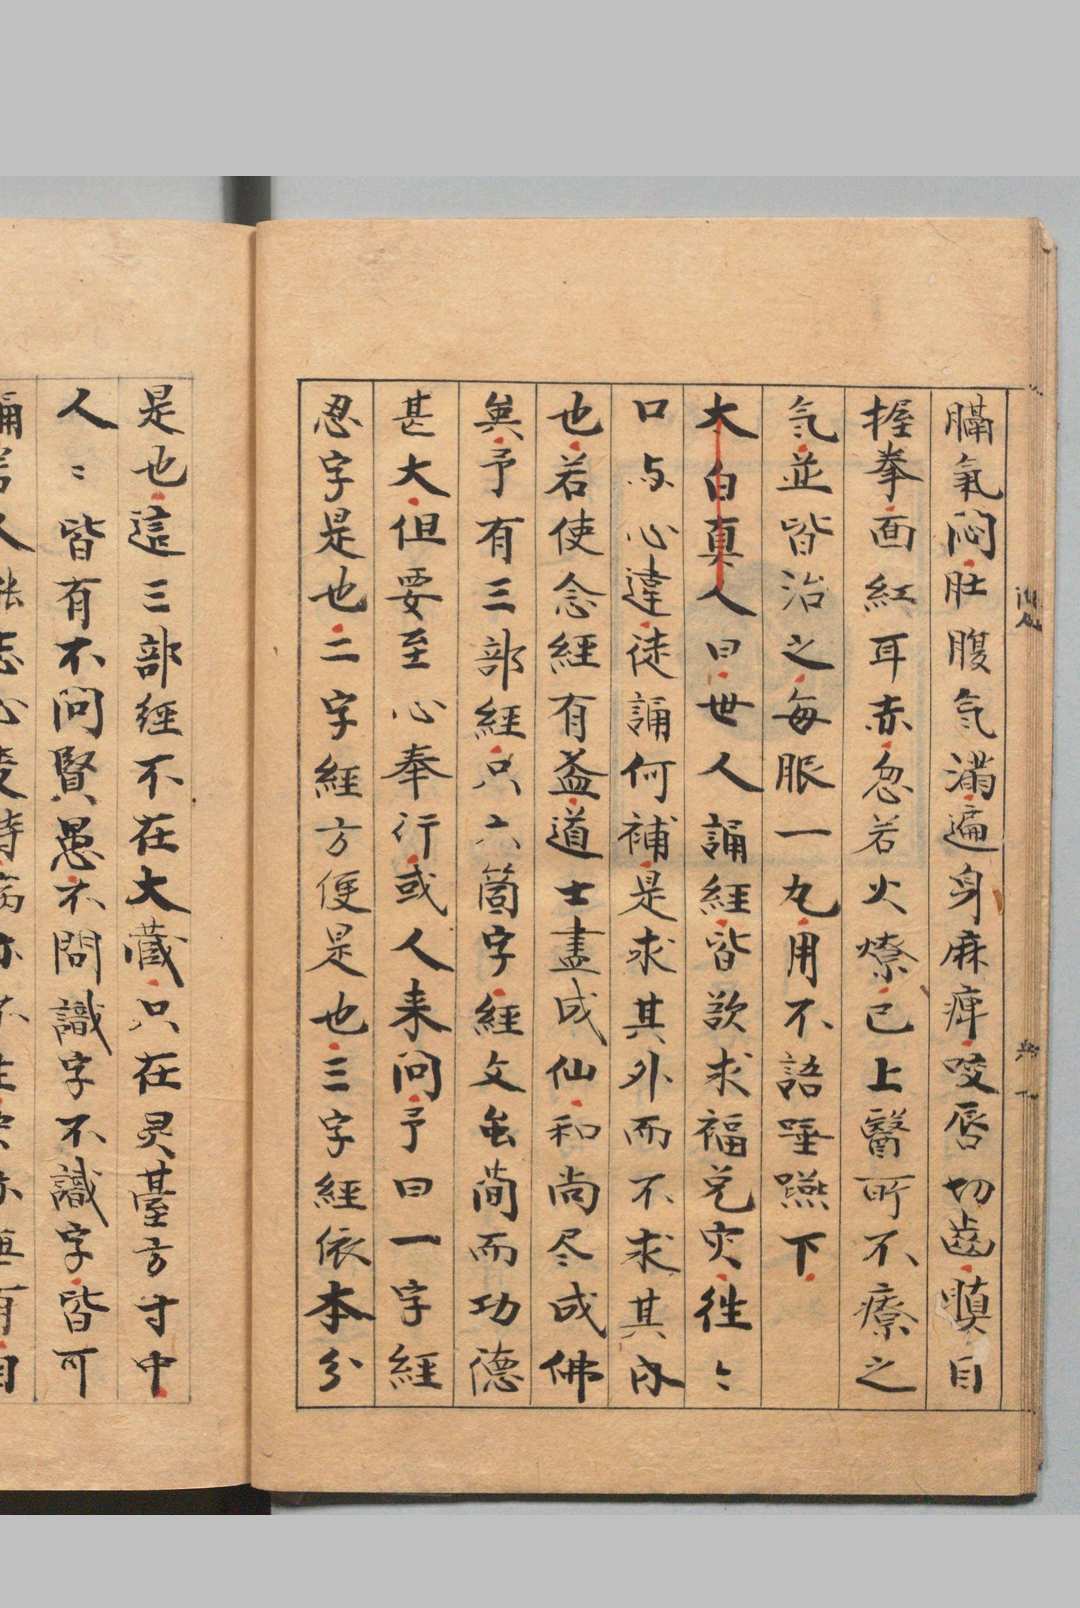 膈氣悶肚腹気滿遍身麻痺咬唇切齒瞋目
握拳面紅耳赤忽若火燎已上醫所不療之
気並皆治之每服一丸用不語唾嚥下
太白真人曰世人誦經皆欲求福免灾徃〻
口与心違徒誦何補是求其外而不求其內
也若使念經有益道士盡成仙和尚尽成佛
矣予有三部經只六箇字經文虽簡而功德
甚大但要至心奉行或人来问予曰一字經
忍字是也二字經方便是也三字經依本分
是也這三部經不在大藏只在灵臺方寸中
人〻皆有不问賢愚不問識字不識字皆可